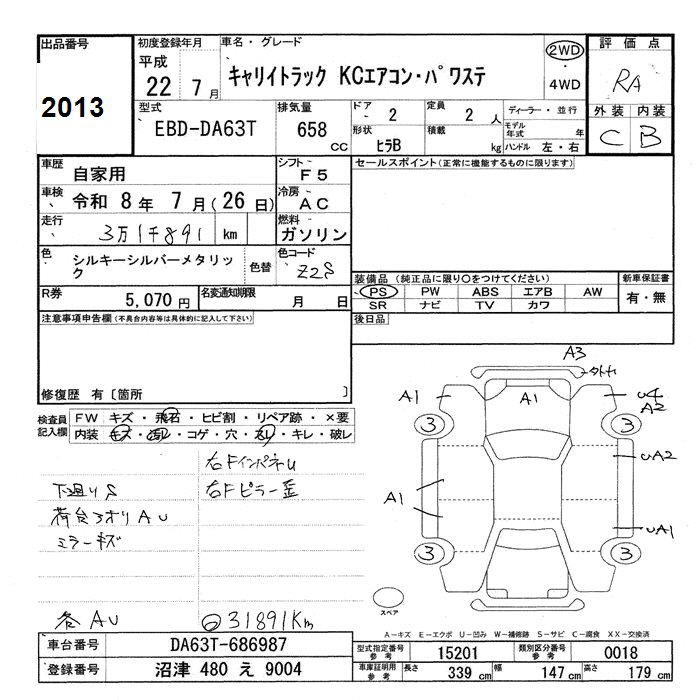 出品番号
2013
初度登録年月
平成
22 7 月
車名・グレード
キャリイトラック KCエアコン・パワステ
2WD
・
4WD
評価点
RA
外装 内装
C B
型式
EBD-DA63T
排気量
658 CC
ドア 2
形状 ヒラB
定員 2 人
積載 kg
ディーラー・並行
モデル年式 年
ハンドル 左・右
車歴 自家用
シフト F5
セールスポイント(正常に機能するものに限ります)
車検 令和 8 年 7 月(26 日)
冷房 AC
走行 3万1千891 km
燃料 ガソリン
色 シルキーシルバーメタリック
色替
色コード Z2S
装備品(純正品に限り○をつけてください)
新車保証書
有・無
PS PW ABS エアB AW
SR ナビ TV カワ
R券 5,070 円
名変通知期限 月 日
後日品
注意事項申告欄(不具合内容等は具体的に記入して下さい)
修復歴 有[箇所 ]
検査員記入欄
FW キズ・飛石・ヒビ割・リペア跡・×要
内装 キズ・汚レ・コゲ・穴・スレ・キレ・破レ
右Fインパネu
下廻りS
右Fピラー歪
荷台アオリAU
ミラーキズ
各AU
31891Km
A3
A1
A1
U4
A2
3
3
UA2
A1
UA1
3
3
スペア
A-キズ E-エクボ U-凹み W-補修跡 S-サビ C-腐食 XX-交換済
車台番号 DA63T-686987
登録番号 沼津 480 え 9004
型式指定番号 参考 15201
類別区分番号 参考 0018
車庫証明用 参考 長さ 339 cm 幅 147 cm 高さ 179 cm